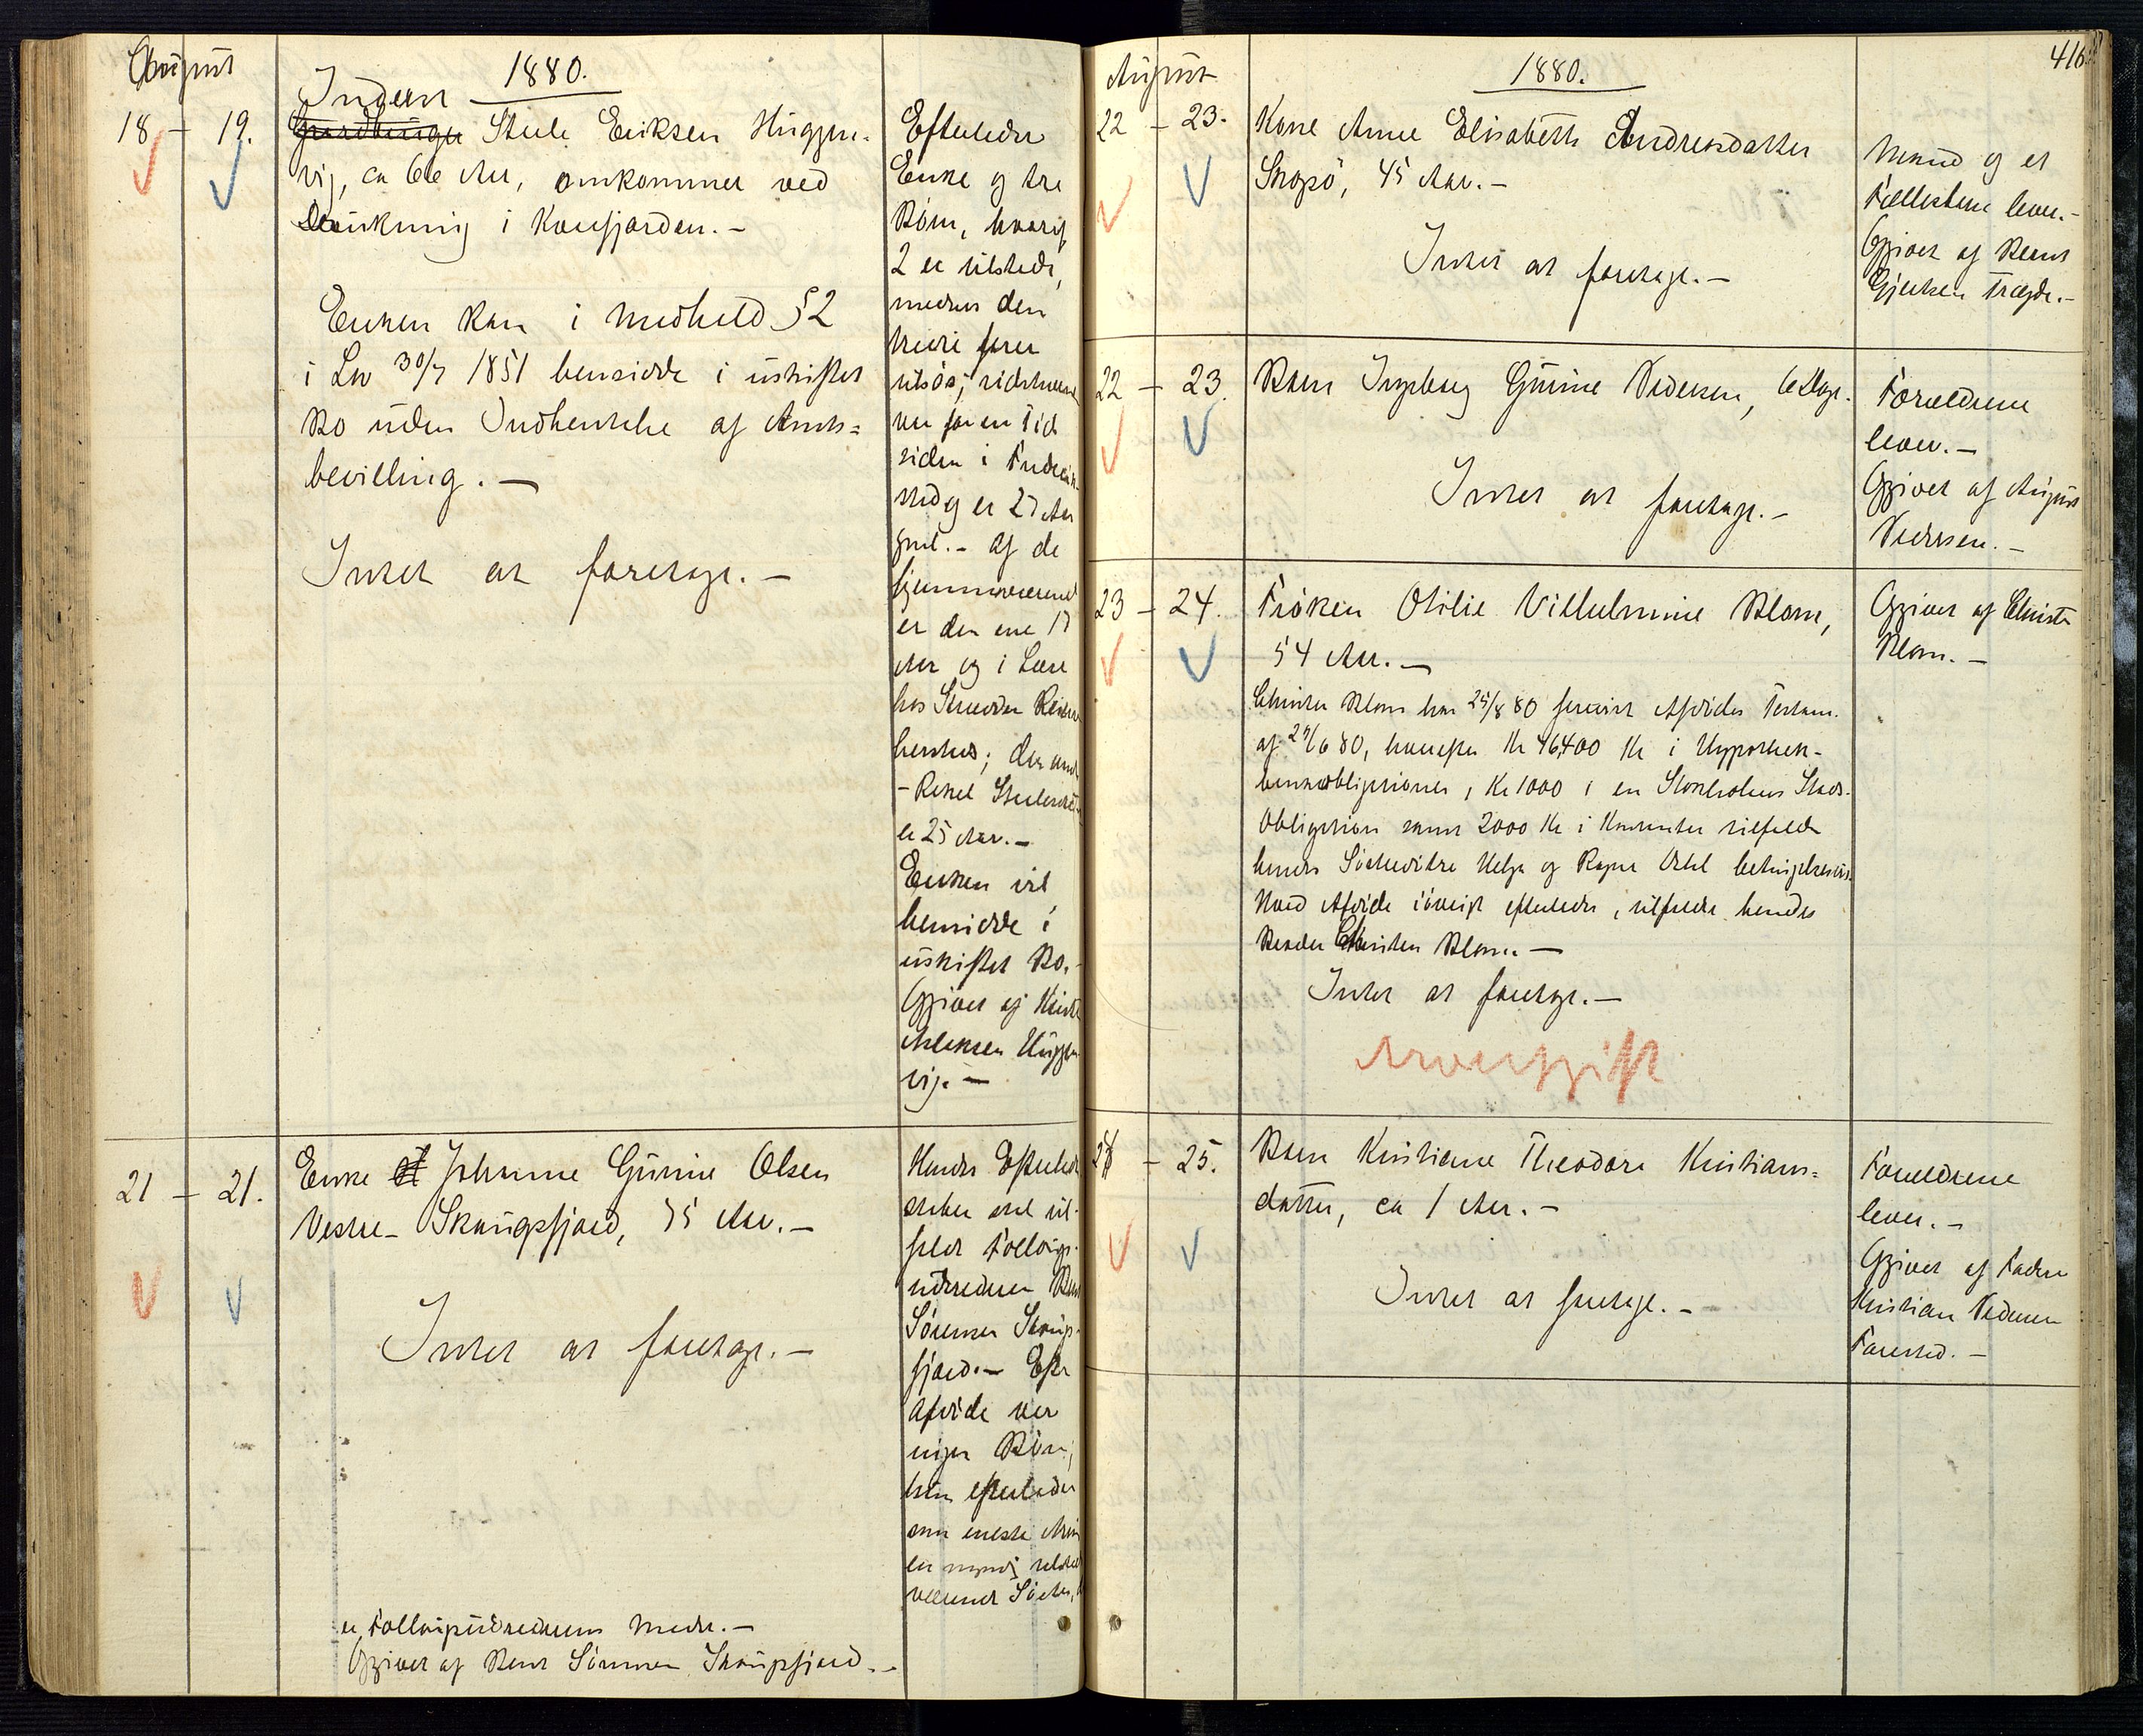 August
1880.
Inderst
18 - 19. Gaardbruger Steele Eriksen Huggen-
vig, ca 66 Aar, omkommen ved
Drukning i Kosfjorden. -
Enken kan i Medhold § 2
i Lov 30/7 1851 hensidde i uskiftet
Bo uden Indhentelse af Amts=
bevilling. -
Intet at foretage. -
Efterleder
Enke og tre
Börn, hvoraf
2 er tilstede,
medens den
tredie farer
tilsös; sidstnævnte
var for en Tid
siden i Fredrik-
stad og er 27 Aar
gml. - Af de
hjemmeværende
er den ene 17
Aar og i Lære
hos Skrædder
; den anden
- Rakel
er 25 Aar. -
Enken vil
hensidde i
uskiftet Bo. -
Opgivet af
Huggen
vig. -
21 - 21. Enke Johanne Gurine Olsen
Vestre - Skougsfjord, 75 Aar. -
Intet at foretage. -
Hendes Efterladen-
skaber skal til-
falde Föllogs-
udrederen Bernt
Sörensen Skougs-
fjord. - Efter
Afdöde var
ingen Börn;
hun efterlader
som eneste Arving
en myndig
Söster,
er Föllogsudrederens Moder. -
Opgivet af Bernt Sörensen Skougsfjord. -
416.
August
1880.
22 - 23. Kone Anne Elisabeth Andreasdatter
Skogsö, 45 Aar. -
Intet at foretage. -
Mand og et
Fællesbarn lever. -
Opgivet af Bernt
Gjertsen Trægde. -
22 - 23. Barn Ingeborg Gurine Pedersen, 6 Dage.
Intet at foretage. -
Forældrene
lever. -
Opgivet af August
Pedersen. -
23 - 24. Fröken Otilie Vilhelmine Blom,
54 Aar. -
Christen Blom har 25/8 80 forevist Afdödes Testam.
af 29/6 80, hvorefter Kr 46400 Kr i Hypothek-
bankobligationer, Kr 1000 i en Stokholms Stads-
Obligation samt 2000 Kr i Kontanter tilfalder
hendes Sösterdötre Helga og Ragna
Hvad Afdöde iövrigt efterlader, tilfalder hendes
Broder Christen Blom. -
Intet at foretage. -
Arveafgift
Opgivet af Christen
Blom. -
24 - 25. Barn Kristiane Theodora Kristians=
datter, ca 1 Aar. -
Intet at foretage. -
Forældrene
lever. -
Opgivet af Faderen
Kristian Pedersen
Farestad. -